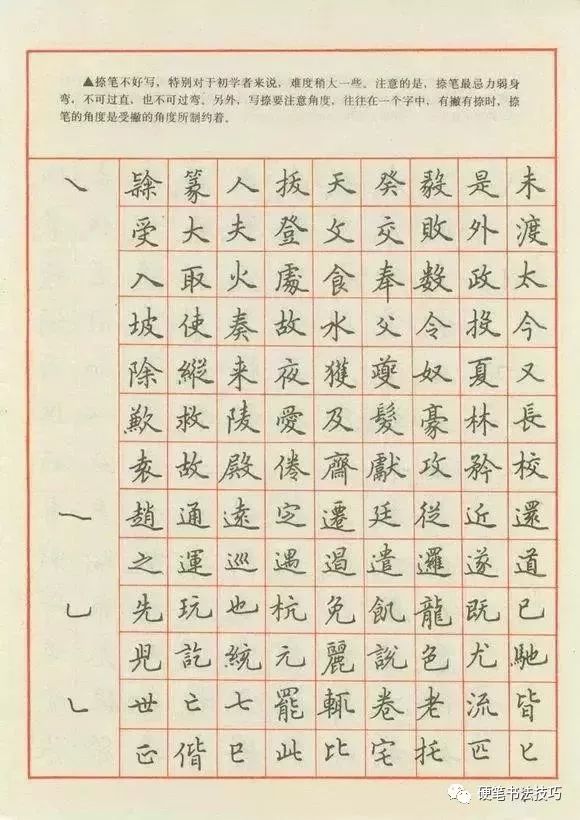 ▲捺笔不好写，特别对于初学者来说，难度稍大一些。注意的是，捺笔最忌力弱身
弯，不可过直，也不可过弯。另外，写捺要注意角度，往往在一个字中，有撇有捺时，捺
笔的角度是受撇的角度所制约着。
㇏ 篆 人 拔 天 癸 毅 是 未
受 大 夫 登 文 交 敗 外 渡
入 取 火 處 食 奉 数 政 太
坡 使 奏 故 水 父 令 投 今
除 縱 来 夜 獲 夔 奴 夏 又
歉 救 陵 愛 及 髮 豪 林 長
袁 故 殿 倦 齋 獻 攻 矜 校
趙 通 遠 定 遷 廷 從 近 還
之 運 巡 遇 遣 邏 遂 道
先 玩 也 杭 免 飢 龍 既 已
兒 訖 統 元 麗 說 色 尤 馳
世 亡 七 罷 輒 卷 老 流 皆
正 偕 巳 此 比 宅 托 匹 匕
硬笔书法技巧